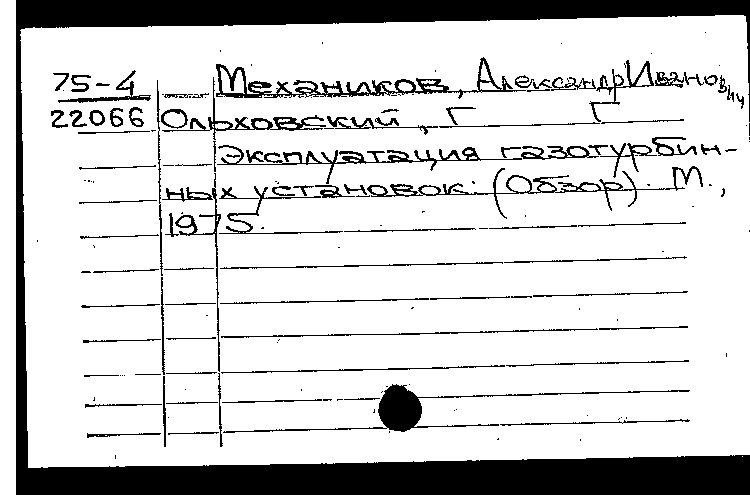 75-4 Механиков, Александр Иванович
22066 Ольховский, Г Г
Эксплуатация газотурбин-
ных установок: (Обзор). М.,
1975.